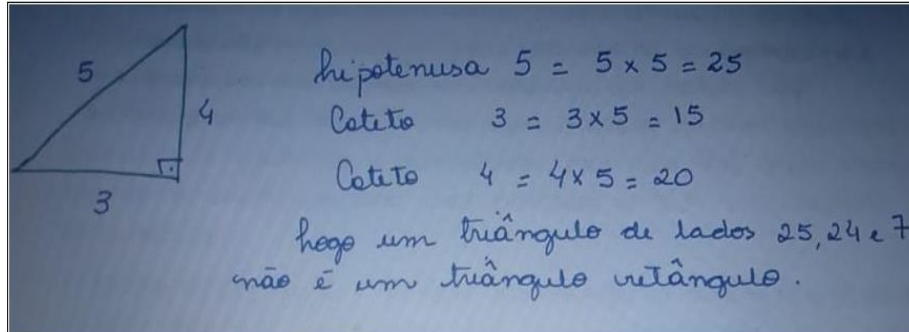 5
4
3
hipotenusa 5 = 5 x 5 = 25
Cateto 3 = 3 x 5 = 15
Cateto 4 = 4 x 5 = 20
Logo um triângulo de lados 25, 24 e 7
não é um triângulo retângulo.